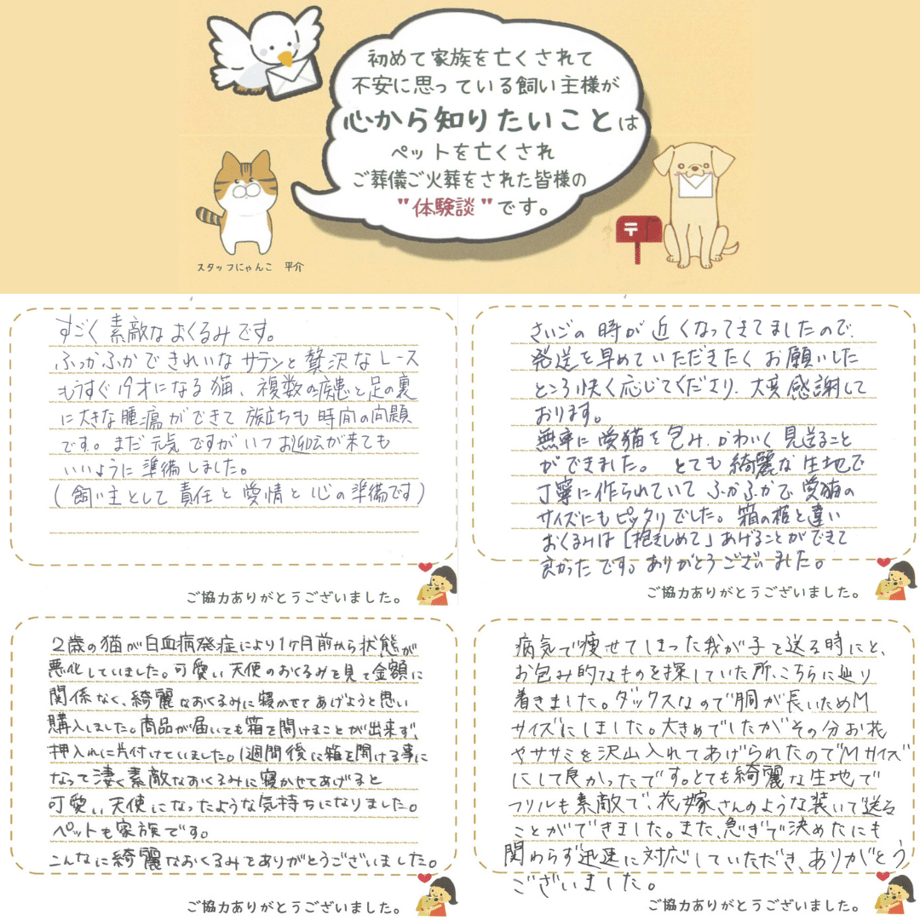 初めて家族を亡くされて
不安に思っている飼い主様が
心から知りたいことは
ペットを亡くされ
ご葬儀ご火葬をされた皆様の
"体験談"です。
スタッフにゃんこ 平介
すごく素敵なおくるみです。
ふっかふかできれいなサテンと贅沢なレース
もうすぐ19才になる猫、複数の病患と足の裏
に大きな腫瘍ができて旅立ちも時間の問題
です。まだ元気ですがいつお迎えが来ても
いいように準備しました。
(飼い主として責任と愛情と心の準備です)
ご協力ありがとうございました。
さいごの時が近くなってきてましたので
発送を早めていただきたくお願いした
ところ快く応じてくださり、大変感謝して
おります。
無事に愛猫を包み、かわいく見送ること
ができました。とても綺麗な生地で
丁寧に作られていてふかふかで愛猫の
サイズにもピッタリでした。箱の柩と違い
おくるみは「抱きしめて」あげることができて
良かったです。ありがとうございました。
ご協力ありがとうございました。
2歳の猫が白血病発症により1ヶ月前から状態が
悪化していました。可愛い天使のおくるみを見て金額に
関係なく、綺麗なおくるみに寝かせてあげようと思い
購入しました。商品が届いても箱を開けることが出来ず、
押入れに片付けていました。1週間後に箱を開ける事に
なって凄く素敵なおくるみに寝かせてあげると
可愛い天使になったような気持ちになりました。
ペットも家族です。
こんなに綺麗なおくるみをありがとうございました。
ご協力ありがとうございました。
病気で痩せてしまった我が子を送る時にと、
お包み的なものを探していた所、こちらに辿り
着きました。ダックスなので胴が長いためM
サイズにしました。大きめでしたがその分お花
やササミを沢山入れてあげられたのでMサイズ
にして良かったです。とても綺麗な生地で
フリルも素敵で、花嫁さんのような装いで送る
ことができました。また、急ぎで決めたにも
関わらず迅速に対応していただき、ありがとう
ございました。
ご協力ありがとうございました。